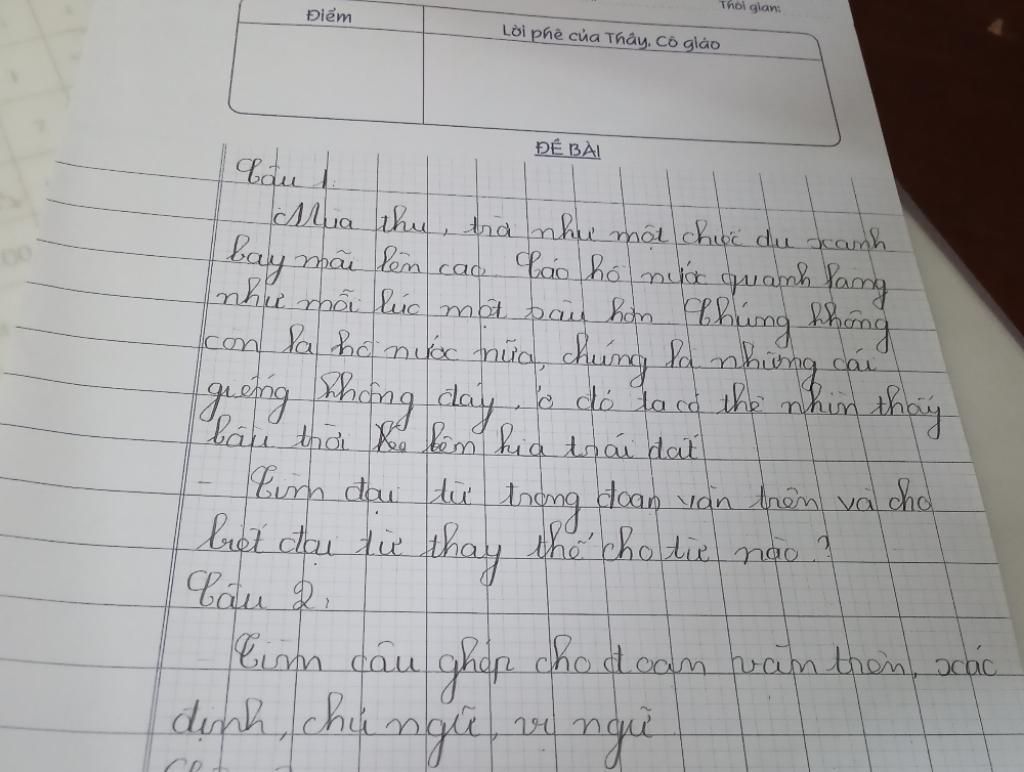 Thời gian:
Điểm
Lời phê của Thầy, Cô giáo
ĐỀ BÀI
Câu 1.
Mùa thu, trời như một chiếc dù xanh
bay mãi lên cao. Các hồ nước quanh làng
như mỗi lúc một sâu hơn. Chúng không
còn là hồ nước nữa, chúng là những cái
giếng không đáy, ở đó ta có thể nhìn thấy
bầu trời bên kia trái đất
- Tìm đại từ trong đoạn văn trên và cho
biết đại từ thay thế cho từ nào?
Câu 2,
Tìm câu ghép cho đoạn văn trên, xác
định, chủ ngữ, vị ngữ